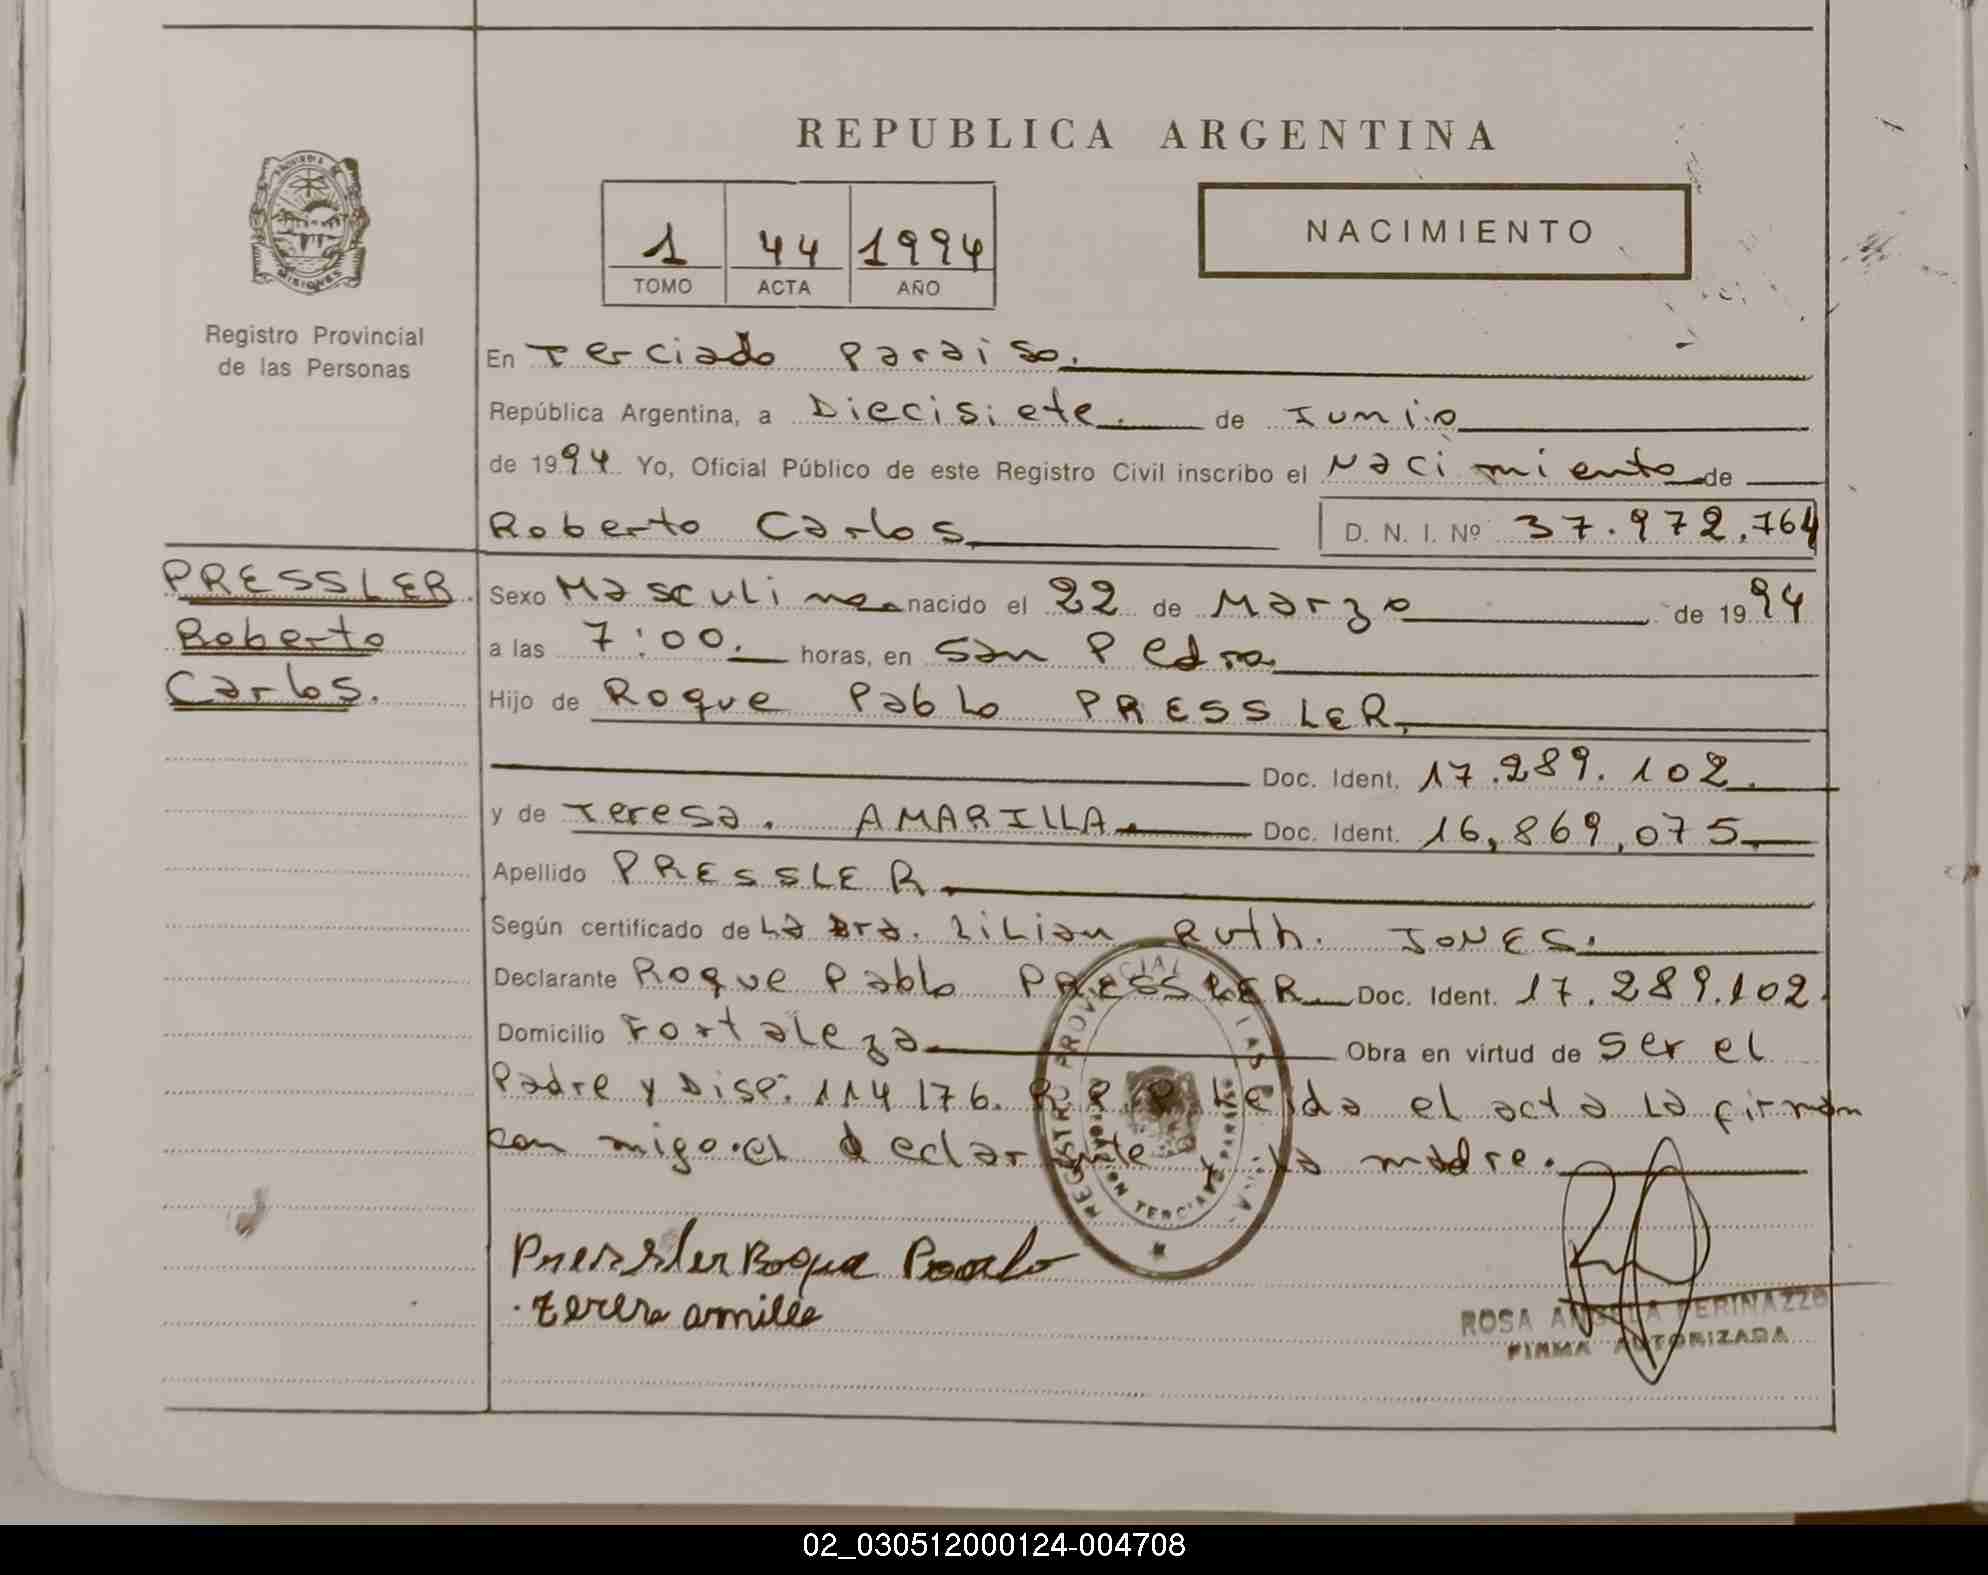 REPUBLICA ARGENTINA
PROVINCIA
MISIONES
1 44 1994
TOMO ACTA AÑO
NACIMIENTO
Registro Provincial
de las Personas
En Terciado Paraiso.
República Argentina, a Diecisiete. de Junio
de 1994 Yo, Oficial Público de este Registro Civil inscribo el Nacimiento de
Roberto Carlos D. N. I. Nº 37.972.764
PRESSLER
Roberto
Carlos.
Sexo Masculino nacido el 22 de Marzo de 1994
a las 7:00. horas, en San Pedro
Hijo de Roque Pablo PRESSLER
Doc. Ident. 17.289.102.
y de Teresa. AMARILLA. Doc. Ident. 16,869,075
Apellido PRESSLER
Según certificado de La Dra. Lilian Ruth. JONES.
Declarante Roque Pablo PRESSLER Doc. Ident. 17.289.102.
Domicilio Fortaleza Obra en virtud de Ser el
Padre y Disp. 114/76. R.P.P. Leida el acta la firman
conmigo.el declarante y la madre.
REGISTRO PROVINCIAL DE LAS
Pressler Roque Paablo
ROSA ANGELA PERINAZZO
FIRMA AUTORIZADA
02_030512000124-004708